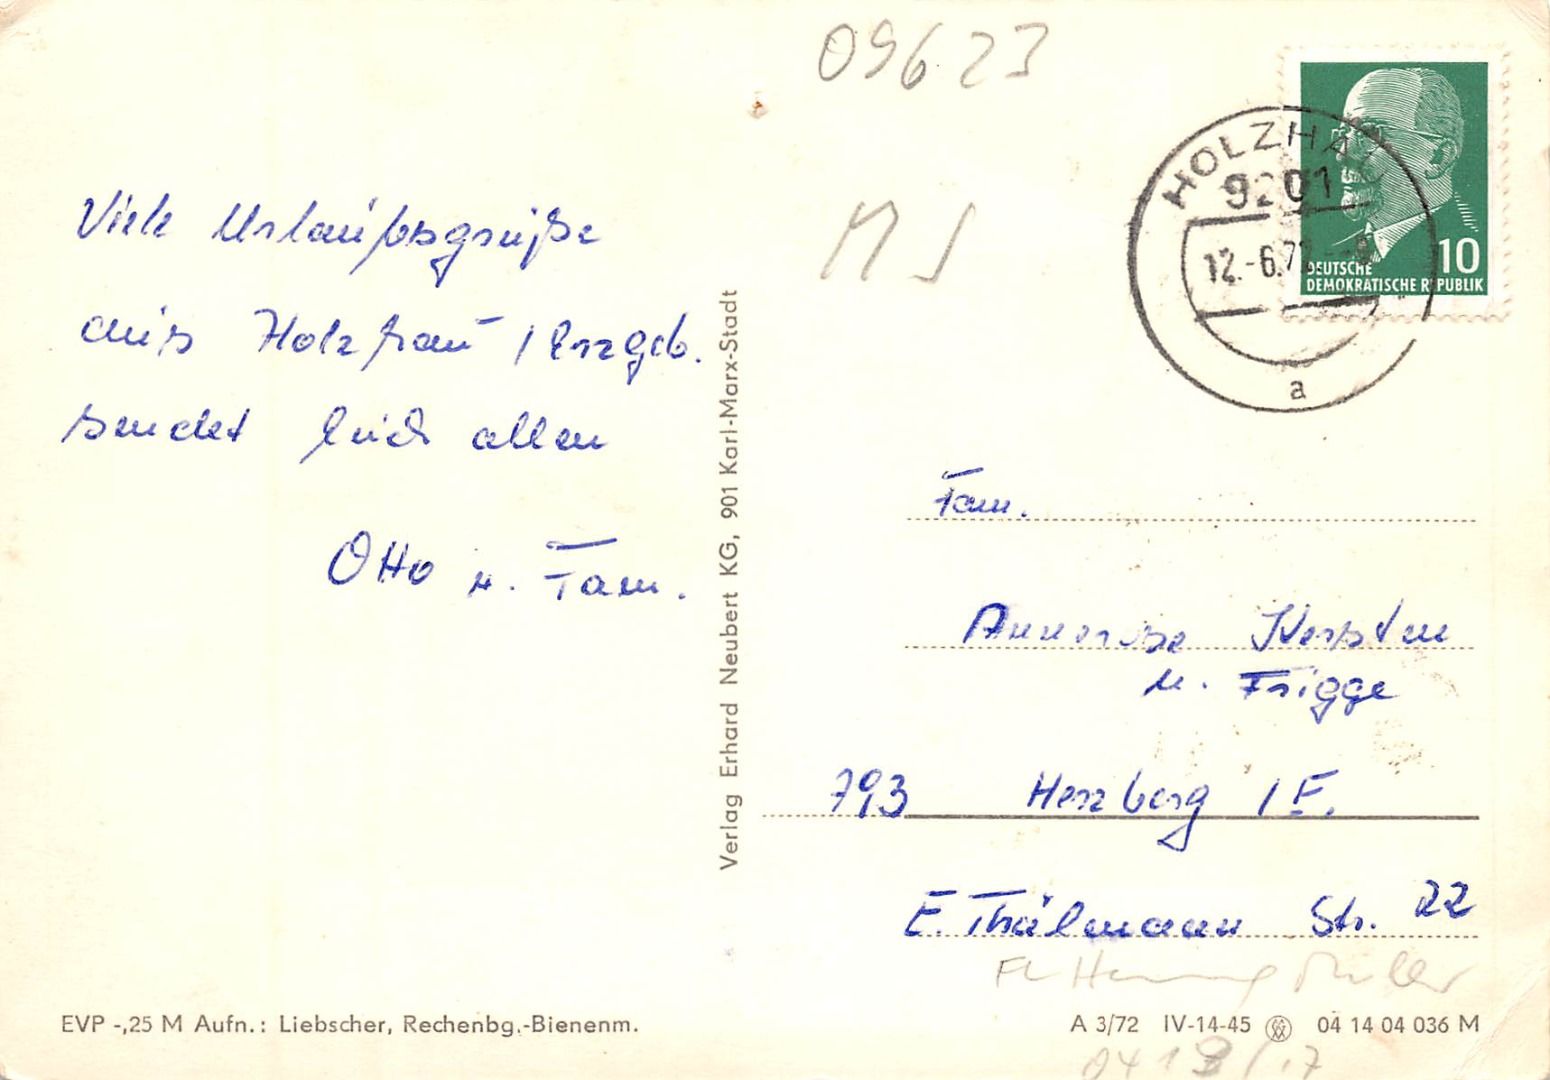 09623
Viele Urlaubsgrüße
aus Holzhau / Erzgeb.
sendet Euch allen
Otto u. Fam.
Verlag Erhard Neubert KG, 901 Karl-Marx-Stadt
MS
HOLZHAU
9201
12.-6.72
a
10
DEUTSCHE
DEMOKRATISCHE REPUBLIK
Fam.
Annerose Kersten
u. Frigge
793 Herzberg / E.
E. Thälmann Str. 22
EVP -,25 M Aufn.: Liebscher, Rechenbg.-Bienenm.
A 3/72 IV-14-45 04 14 04 036 M